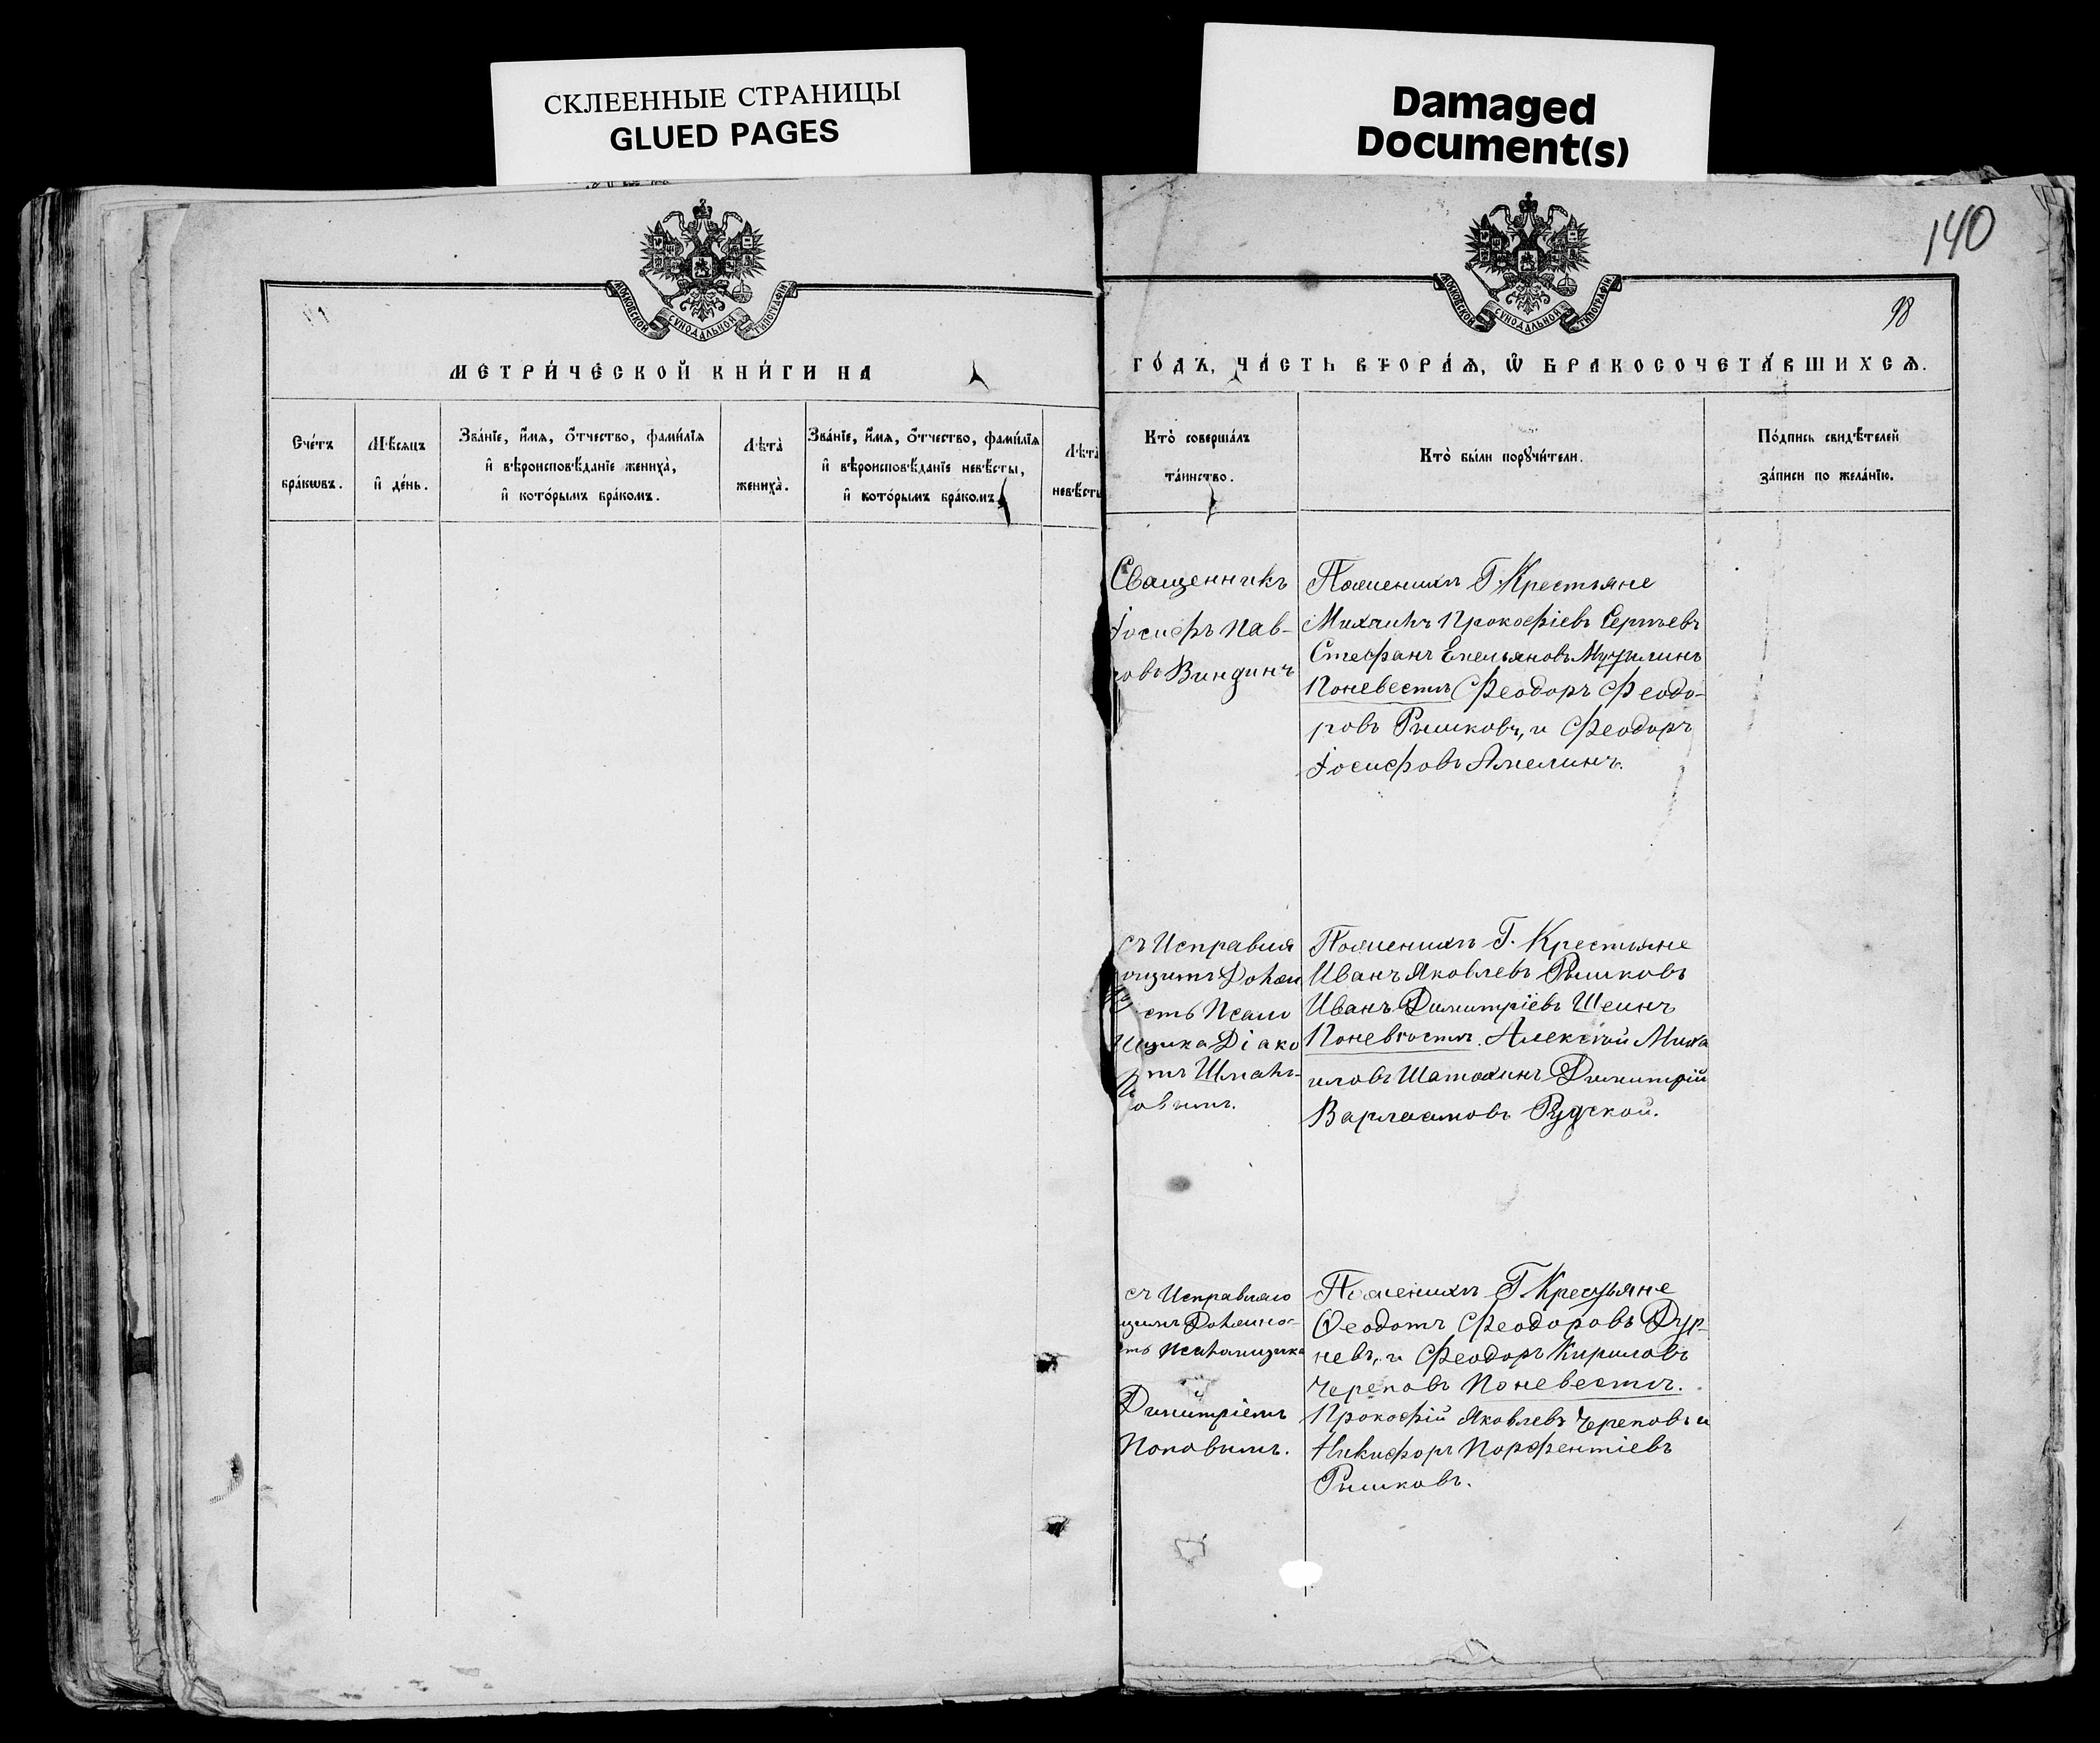 СКЛЕЕННЫЕ СТРАНИЦЫ
GLUED PAGES
Damaged
Document(s)
140
98
МОСКОВСКОЙ СѴНОДАЛЬНОЙ ТИПОГРАФІИ
МОСКОВСКОЙ СѴНОДАЛЬНОЙ ТИПОГРАФІИ
МЕТРИ́ЧЕСКОЙ КНИ́ГИ НА
ГО́ДЪ, ЧА́СТЬ ВТОРА́Ѧ, Ѽ БРАКОСОЧЕТА́ВШИХСѦ.
Сче́тъ
бра́кѡвъ.
Мѣ́сѧцъ
и҆ де́нь.
Зва́нїе, и҆́мѧ, ѻ҆́тчество, фами́лїѧ
и҆ вѣроисповѣ́данїе жениха̀,
и҆ кото́рымъ бра́комъ.
Лѣта̀
жениха̀.
Зва́нїе, и҆́мѧ, ѻ҆́тчество, фами́лїѧ
и҆ вѣроисповѣ́данїе невѣ́сты,
и҆ кото́рымъ бра́комъ
Лѣта̀
невѣ́сты
Кто̀ соверша́лъ
та́инство.
Кто̀ бы́ли порꙋчи́тели.
По́дпись свидѣ́телей
за́писи по жела́нїю.
Священникъ
Іосифъ Пав-
ровъ Виндинъ
Поженихѣ Г. Крестьяне
Михаилъ Прокофіевъ Сергѣевъ
Стефанъ Емельяновъ
Поневестѣ Феодоръ Феодо-
ровъ Рышковъ, и Феодоръ
Іосифовъ Амелинъ.
съ Исправля
ющимъ Долж
сть Псало
щика Діако
мъ
овымъ.
Поженихѣ Г. Крестьяне
Иванъ Яковлевъ Рышковъ
Иванъ Димитріевъ Шеинъ
Поневѣстѣ. Алексѣй Миха
иловъ Шатохинъ Димитрій
Варлаамовъ Рудской.
съ Исправляю
щимъ Должно-
сть Псаломщика
Димитріемъ
Поповымъ.
Поженихѣ Г. Крестьяне
Ѳеодотъ Феодоровъ Дур-
невъ, и Феодоръ Кириловъ
Череповъ Поневестѣ.
Прокофій Яковлевъ Череповъ и
Никифоръ Порфентіевъ
Рышковъ.